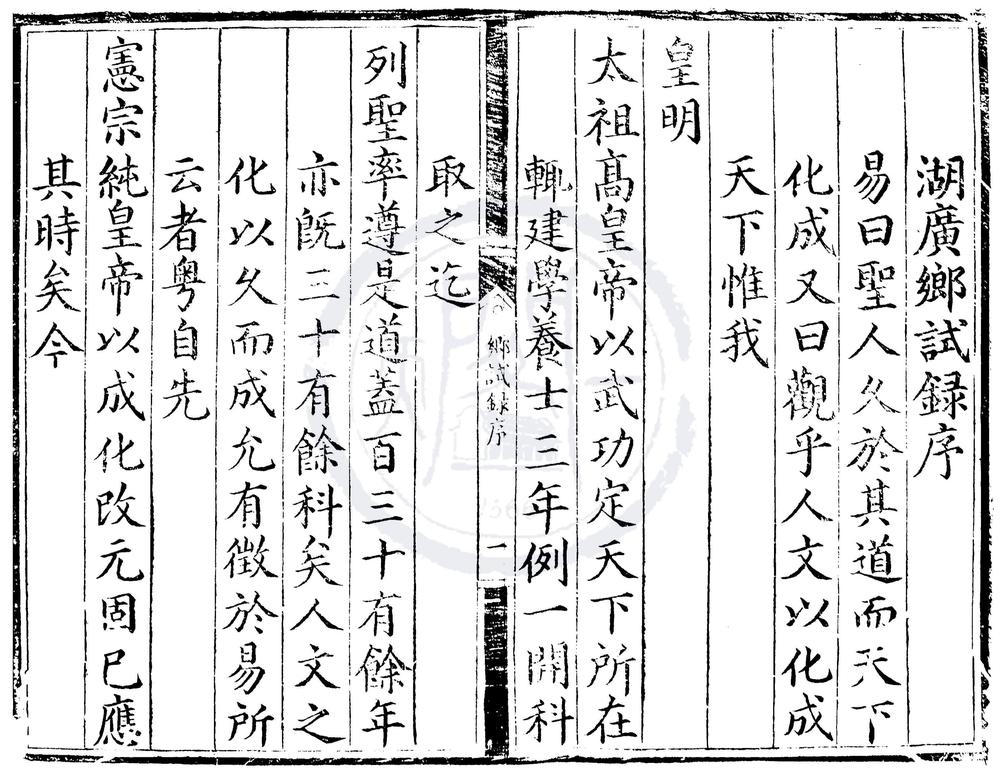 湖廣鄉試録序
易曰聖人久於其道而天下
化成又曰觀乎人文以化成
天下惟我
皇明
太祖髙皇帝以武功定天下所在
輒建學養士三年例一開科
鄉試録序
一
取之迄
列聖率遵是道蓋百三十有餘年
亦旣三十有餘科矣人文之
化以久而成允有徵於易所
云者粤自先
憲宗純皇帝以成化改元固已應
其時矣今